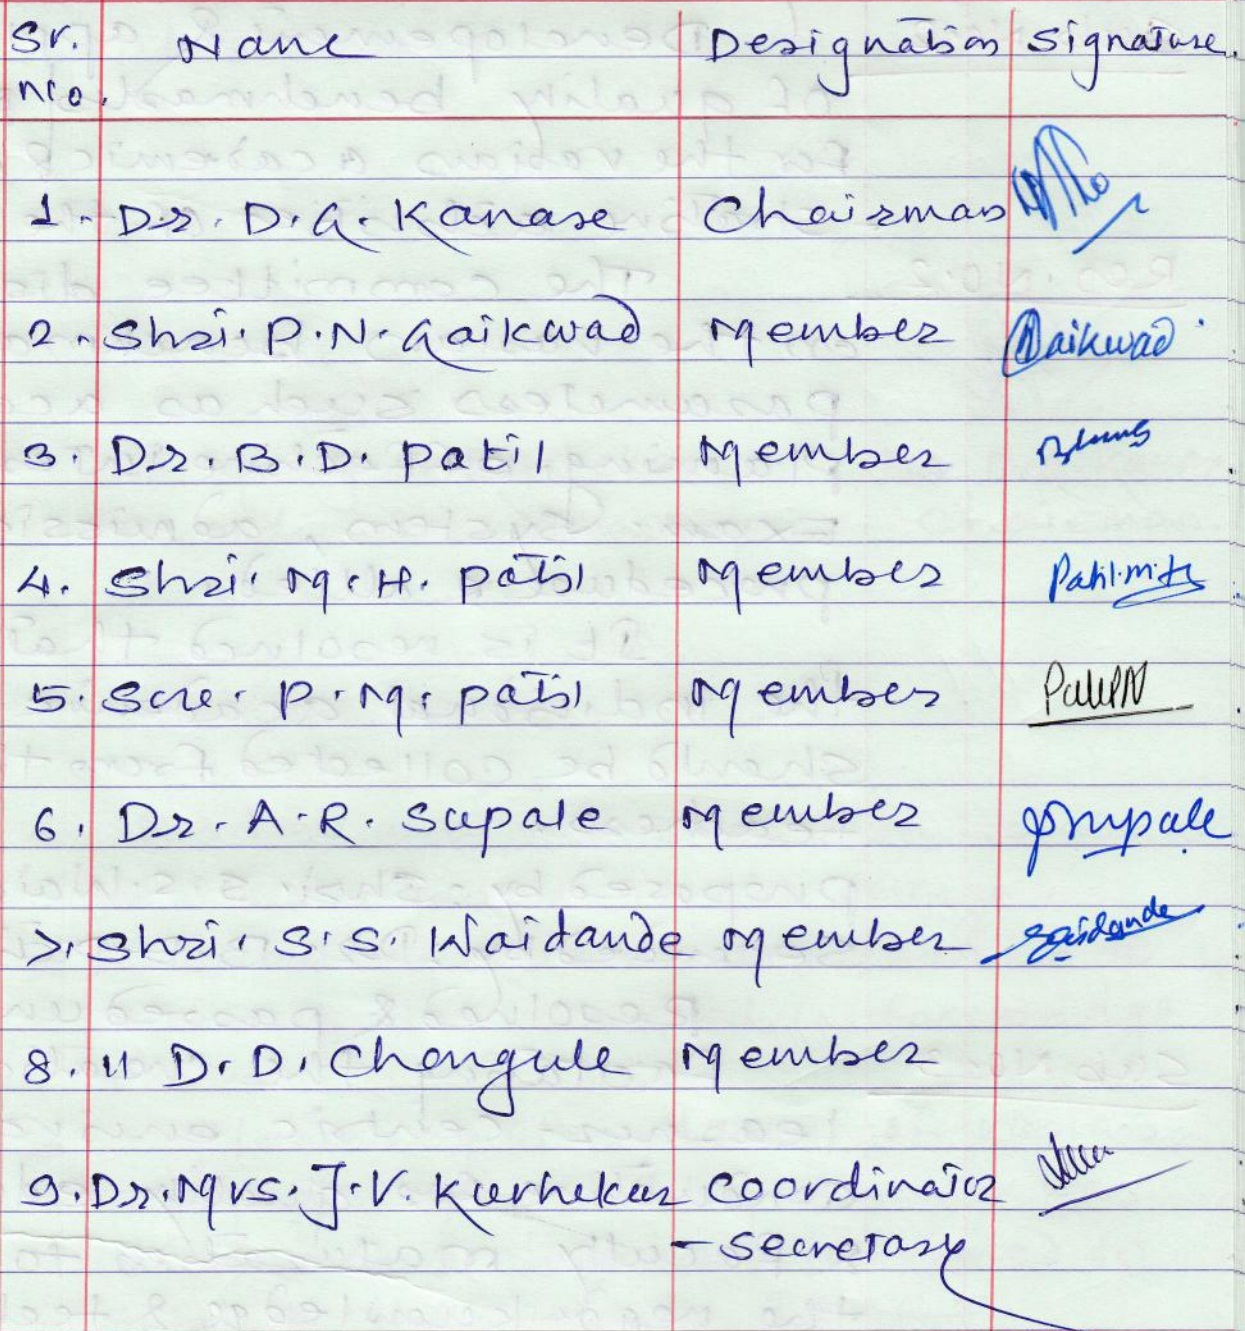 Sr. Name Designation Signature.
No.
1. Dr. D. G. Kanase Chairman
2. Shri. P. N. Gaikwad Member Gaikwad
3. Dr. B. D. Patil Member
4. Shri. M. H. Patil Member Patil.M.H
5. Sou. P. M. Patil Member
6. Dr. A. R. Supale Member
7. Shri. S. S. Waidande Member
8. 11 D. D. Chougule Member
9. Dr. Mrs. J. V. Kurhekar Coordinator
- Secretary